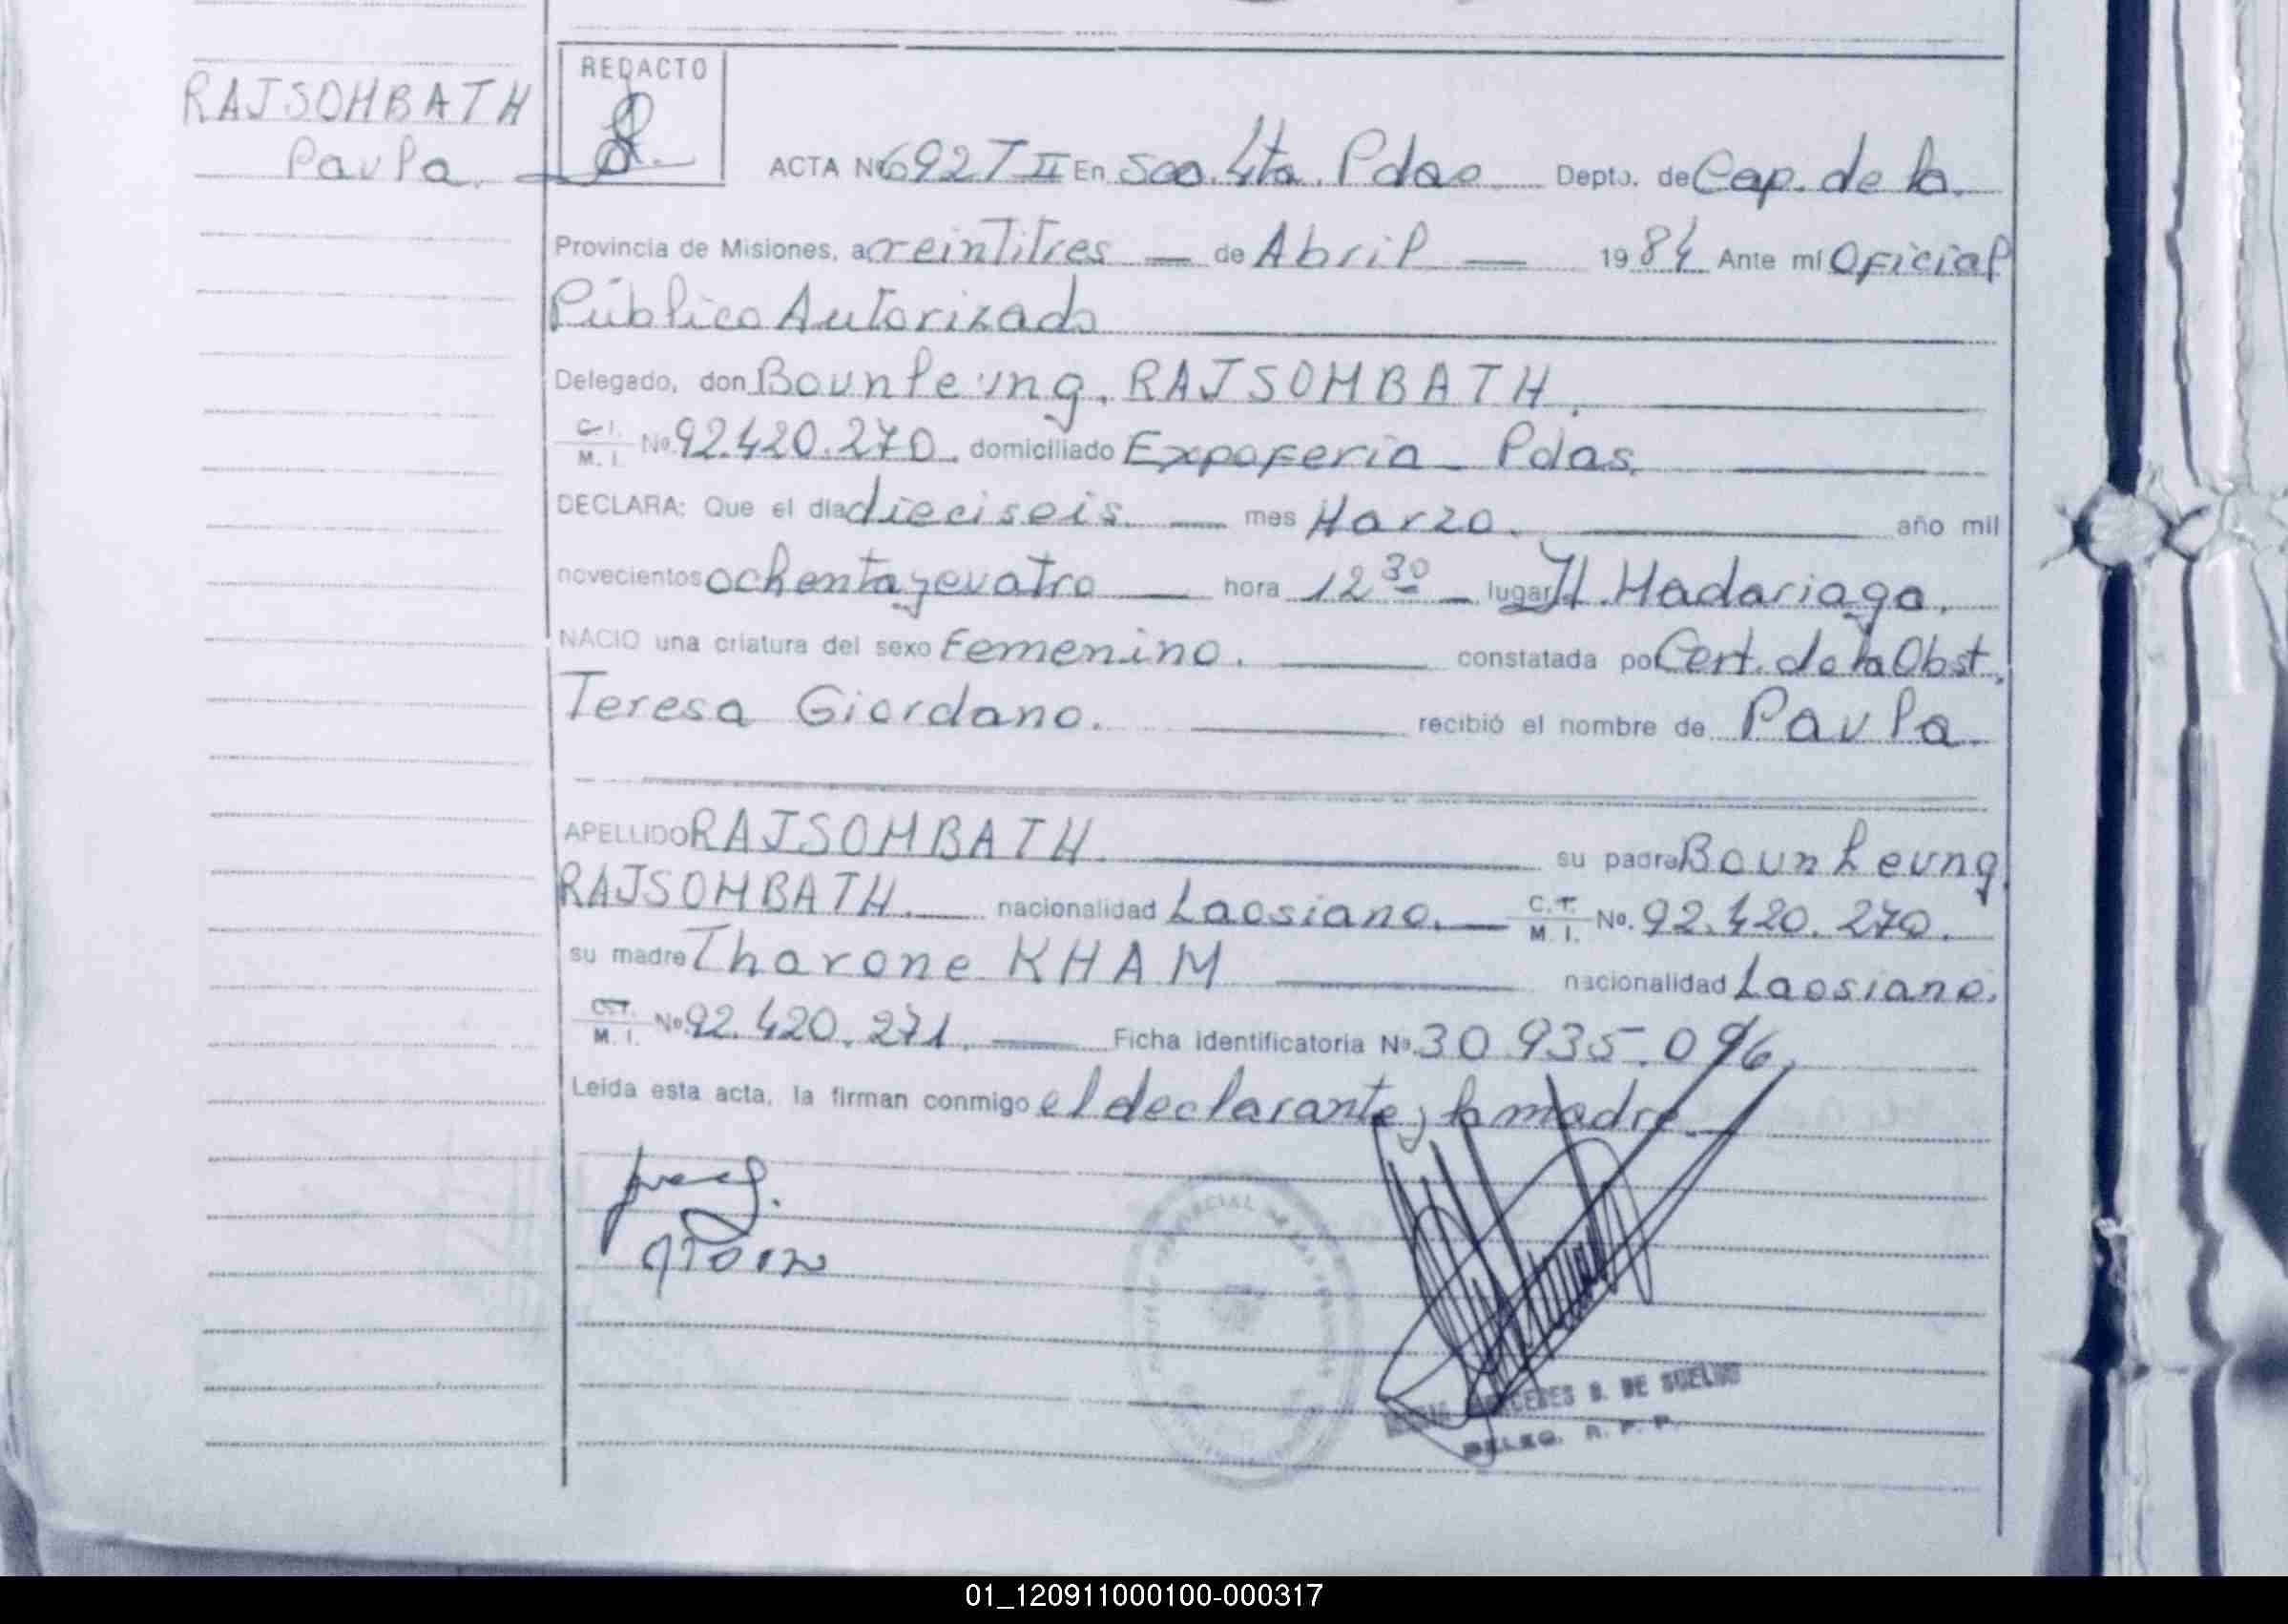 RAJSOMBATH
Paula.
REDACTO
ACTA Nº 692 T II En Scc. 4ta. Pdas. Depto. de Cap. de la
Provincia de Misiones, a veintitres — de Abril — 1984 Ante mí Oficial
Público Autorizado
Delegado, don Bounleung. RAJSOMBATH.
C.I. M. I. Nº 92.420.270. domiciliado Expoferia - Pdas.
DECLARA: Que el día dieciseis. — mes Marzo. — año mil
novecientos ochenta y cuatro — hora 12 30 — lugar H. Madariaga.
NACIO una criatura del sexo Femenino. — constatada por Cert. de la Obst.
Teresa Giordano. — recibió el nombre de Paula.
APELLIDO RAJSOMBATH. — su padre Bounleung
RAJSOMBATH. — nacionalidad Laosiano. — C.I. M. I. Nº. 92.420.270.
su madre Tharone KHAM — nacionalidad Laosiano.
M. I. Nº 92.420.271. — Ficha identificatoria Nº. 30.935.096.
Leída esta acta, la firman conmigo el declarante y la madre.
MERCEDES B. DE SUELDO
DELEG. R. P. P.
01_120911000100-000317